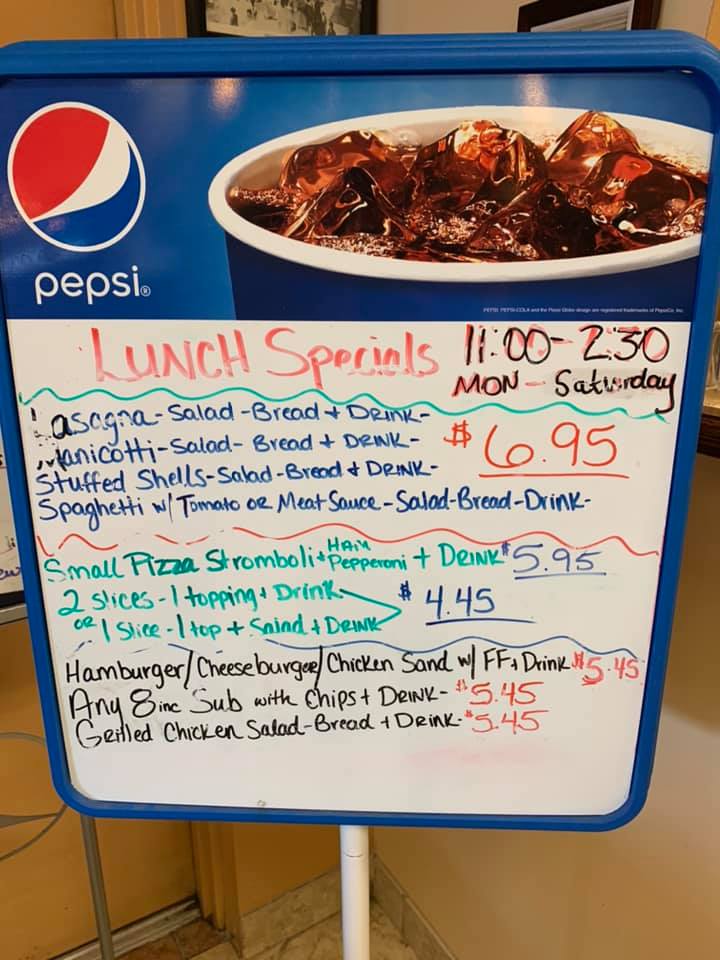 pepsi®
PEPSI, PEPSI-COLA and the Pepsi Globe design are registered trademarks of PepsiCo, Inc.
LUNCH Specials 11:00-2:30
MON - Saturday
Lasagna-Salad-Bread + DRINK-
Manicotti-Salad- Bread + DRINK- $6.95
Stuffed Shells-Salad-Bread + DRINK-
Spaghetti w/ Tomato OR Meat Sauce-Salad-Bread-Drink-
Small Pizza Stromboli + HAM Pepperoni + DRINK $5.95
2 slices-1 topping + Drink $4.45
OR 1 Slice-1 top + Salad + DRINK
Hamburger/Cheeseburger/Chicken Sand w/ FF + Drink $5.45
Any 8 inc Sub with Chips + DRINK- $5.45
Grilled Chicken Salad-Bread + DRINK- $5.45